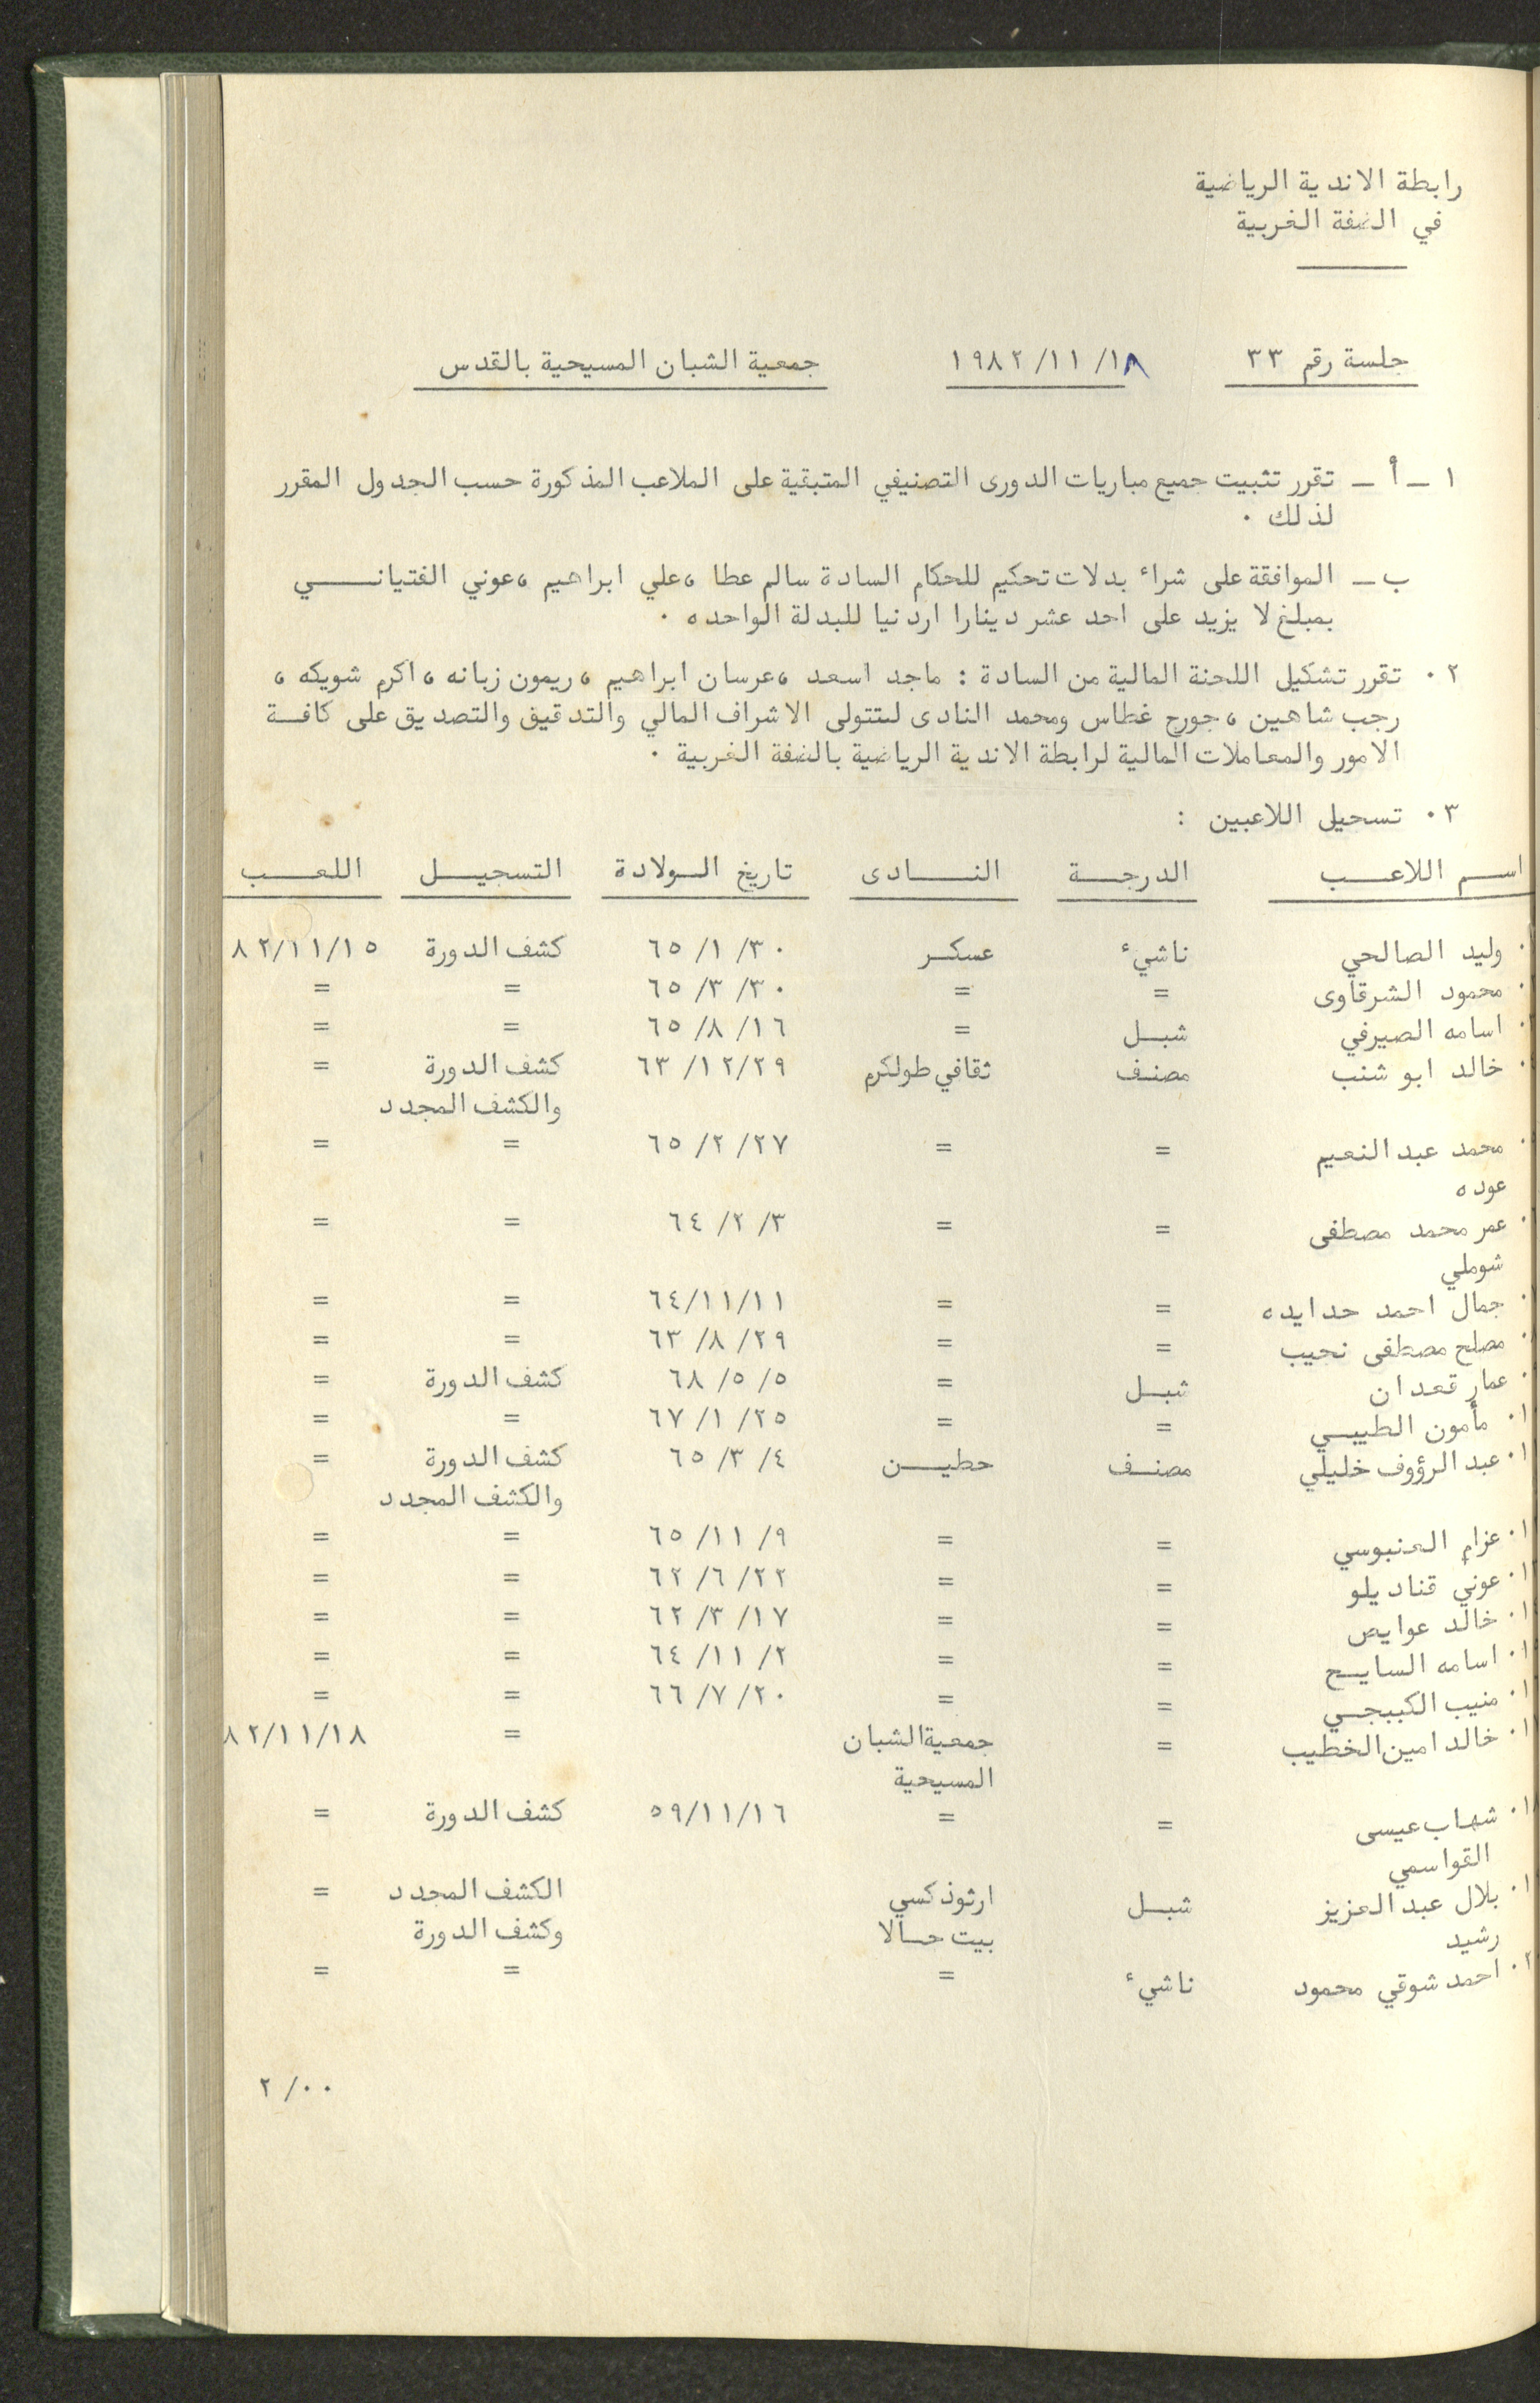 رابطة الاندية الرياضية
في الضفة الغربية
جلسة رقم ٣٣ ١٩٨٢/١١/١٨ جمعية الشبان المسيحية بالقدس
١ - أ - تقرر تثبيت جميع مباريات الدورى التصنيفي المتبقية على الملاعب المذكورة حسب الجدول المقرر
لذلك .
ب - الموافقة على شراء بدلات تحكيم للحكام السادة سالم عطا ، علي ابراهيم ، عوني الفتياني
بمبلغ لا يزيد على احد عشر دينارا اردنيا للبدلة الواحده .
٢ . تقرر تشكيل اللجنة المالية من السادة : ماجد اسعد ، عرسان ابراهيم ، ريمون زبانه ، اكرم شويكه ،
رجب شاهين ، جورج غطاس ومحمد النادى لتتولى الاشراف المالي والتدقيق والتصديق على كافة
الامور والمعاملات المالية لرابطة الاندية الرياضية بالضفة الغربية .
٣ . تسجيل اللاعبين :
اسم اللاعب الدرجة النادى تاريخ الولادة التسجيل اللعب
. وليد الصالحي ناشيء عسكر ٣٠/ ١/ ٦٥ كشف الدورة ٨٢/١١/١٥
. محمود الشرقاوى = = ٣٠/ ٣/ ٦٥ = =
. اسامه الصيرفي شبل = ١٦/ ٨/ ٦٥ = =
. خالد ابو شنب مصنف ثقافي طولكرم ٢٩/١٢/ ٦٣ كشف الدورة =
والكشف المجدد
. محمد عبد النعيم = = ٢٧/ ٢/ ٦٥ = =
عوده
. عمر محمد مصطفى = = ٣/ ٢/ ٦٤ = =
شوملي
. جمال احمد حدايده = = ١١/١١/ ٦٤ = =
. مصلح مصطفى نجيب = = ٢٩/ ٨/ ٦٣ = =
. عمار قعدان شبل = ٥/ ٥/ ٦٨ كشف الدورة =
١. مأمون الطيبي = = ٢٥/ ١/ ٦٧ = =
١. عبد الرؤوف خليلي مصنف حطين ٤/ ٣/ ٦٥ كشف الدورة =
والكشف المجدد
١. عزام العنبوسي = = ٩/ ١١/ ٦٥ = =
١. عوني قناديلو = = ٢٢/ ٦/ ٦٢ = =
١. خالد عوايص = = ١٧/ ٣/ ٦٢ = =
١. اسامه السايح = = ٢/ ١١/ ٦٤ = =
١. منيب الكببجي = = ٢٠/ ٧/ ٦٦ = =
١. خالد امين الخطيب = جمعية الشبان = ٨٢/١١/١٨
المسيحية
١. شهاب عيسى = = ١٦/١١/ ٥٩ كشف الدورة =
القواسمي
١. بلال عبد العزيز شبل ارثوذكسي الكشف المجدد =
رشيد بيت جالا وكشف الدورة
٢. احمد شوقي محمود ناشيء = = =
٢/٠٠